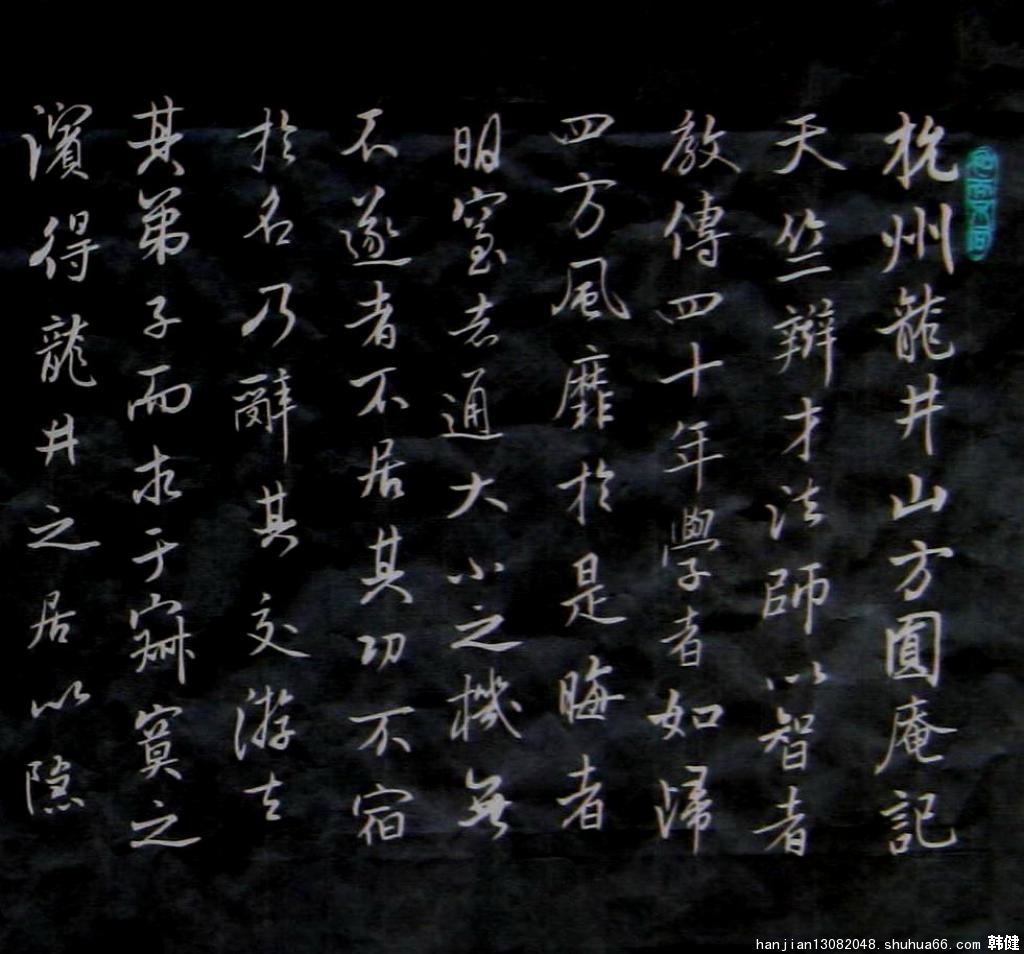 杭州龍井山方圓庵記
天竺辯才法師以智者
教傳四十年學者如歸
四方風靡於是晦者
明窒者通大小之機無
不遂者不居其功不宿
於名乃辭其交游去
其弟子而求于寂寞之
濱得龍井之居以隱
hanjian13082048.shuhua66.com 韩健